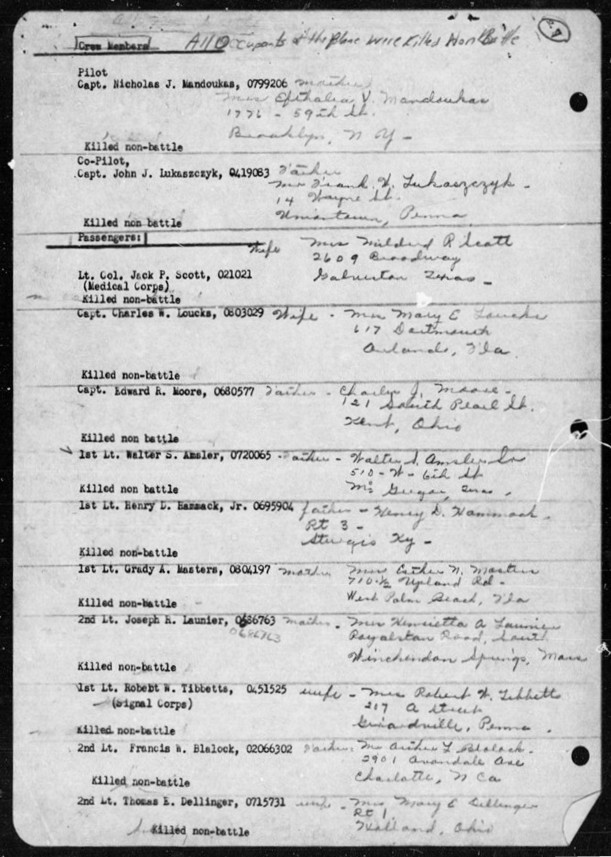 Crew Members All Occupants of the plane were Killed Non Battle
Pilot
Capt. Nicholas J. Mandoukas, 0799206 mother
Mrs Efthalia V. Mandoukas
1776 - 59th St.
Brooklyn, N Y -
Killed non-battle
Co-Pilot,
Capt. John J. Lukaszczyk, 0419083 Father
Mr Frank W. Lukaszczyk -
14 Wayne St.
Uniontown, Penna
Killed non battle
Passengers:
Wife Mrs Mildred P. Scott
2609 Broadway
Lt. Col. Jack P. Scott, 021021 Galveston Texas -
(Medical Corps)
Killed non-battle
Capt. Charles W. Loucks, 0803029 Wife - Mrs Mary E Loucks
617 Dartmouth
Orlando, Fla.
Killed non-battle
Capt. Edward R. Moore, 0680577 Father - Charley J. Moore -
121 South Pearl St.
Kent, Ohio
Killed non battle
1st Lt. Walter S. Amsler, 0720065 - Father - Walter S. Amsler Sr
510 - W - 6th St
Killed non battle Mc Gregor, Texas.
1st Lt. Henry D. Hammack, Jr. 0695904 father - Henry D. Hammack.
Rt 3 -
Sturgis Ky -
Killed non-battle
1st Lt. Grady A. Masters, 0804197 mother Mrs Esther N. Masters
710½ Upland Rd -
West Palm Beach, Fla
Killed non-battle
2nd Lt. Joseph R. Launier, 0686763 mother - Mrs Henrietta A Launier
0686763 Royalston Road, South
Winchendon Springs, Mass
Killed non-battle
1st Lt. Robebt W. Tibbetts, 0451525 wife - Mrs Robert W. Tibbetts
(Signal Corps) 217 A Street
Girardville, Penna.
Killed non-battle
2nd Lt. Francis W. Blalock, 02066302 Father Mr Arthur L Blalock.
2901 Avondale Ave
Killed non-battle Charlotte, N Ca
2nd Lt. Thomas E. Dellinger, 0715731 wife - Mrs Mary E Dellinger
Rt 1
Killed non-battle Holland, Ohio